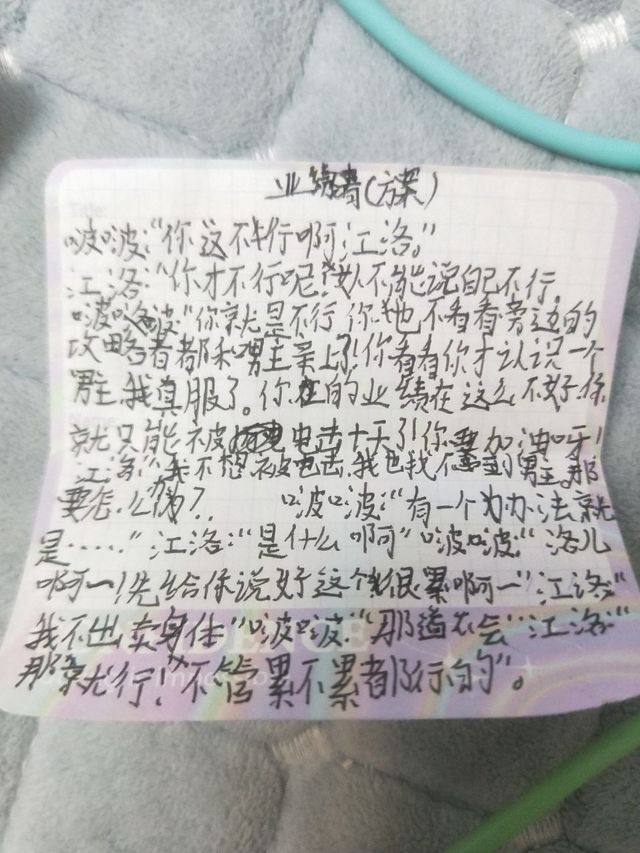 业绩(方案)
啵啵:“你这不行啊,江洛。”
江洛:“你才不行呢,女人不能说自己不行。
啵啵“你就是不行,你也不看看旁边的
攻略者都和男主亲上了!你看看你才认识一个
男主,我真服了。你的业绩在这么不好,你
就只能被电击十天了!你要加油呀!
江洛:“我不想被电击,我也找不到男主。那
要怎么做?” 啵啵:“有一个办法就
是……”江洛:“是什么啊”啵啵:“洛儿
啊一!先给你说好这个很累啊一”江洛:“
我不出卖身体”啵啵:“那道不会”江洛:“
那就行!”不管累不累都行的”。